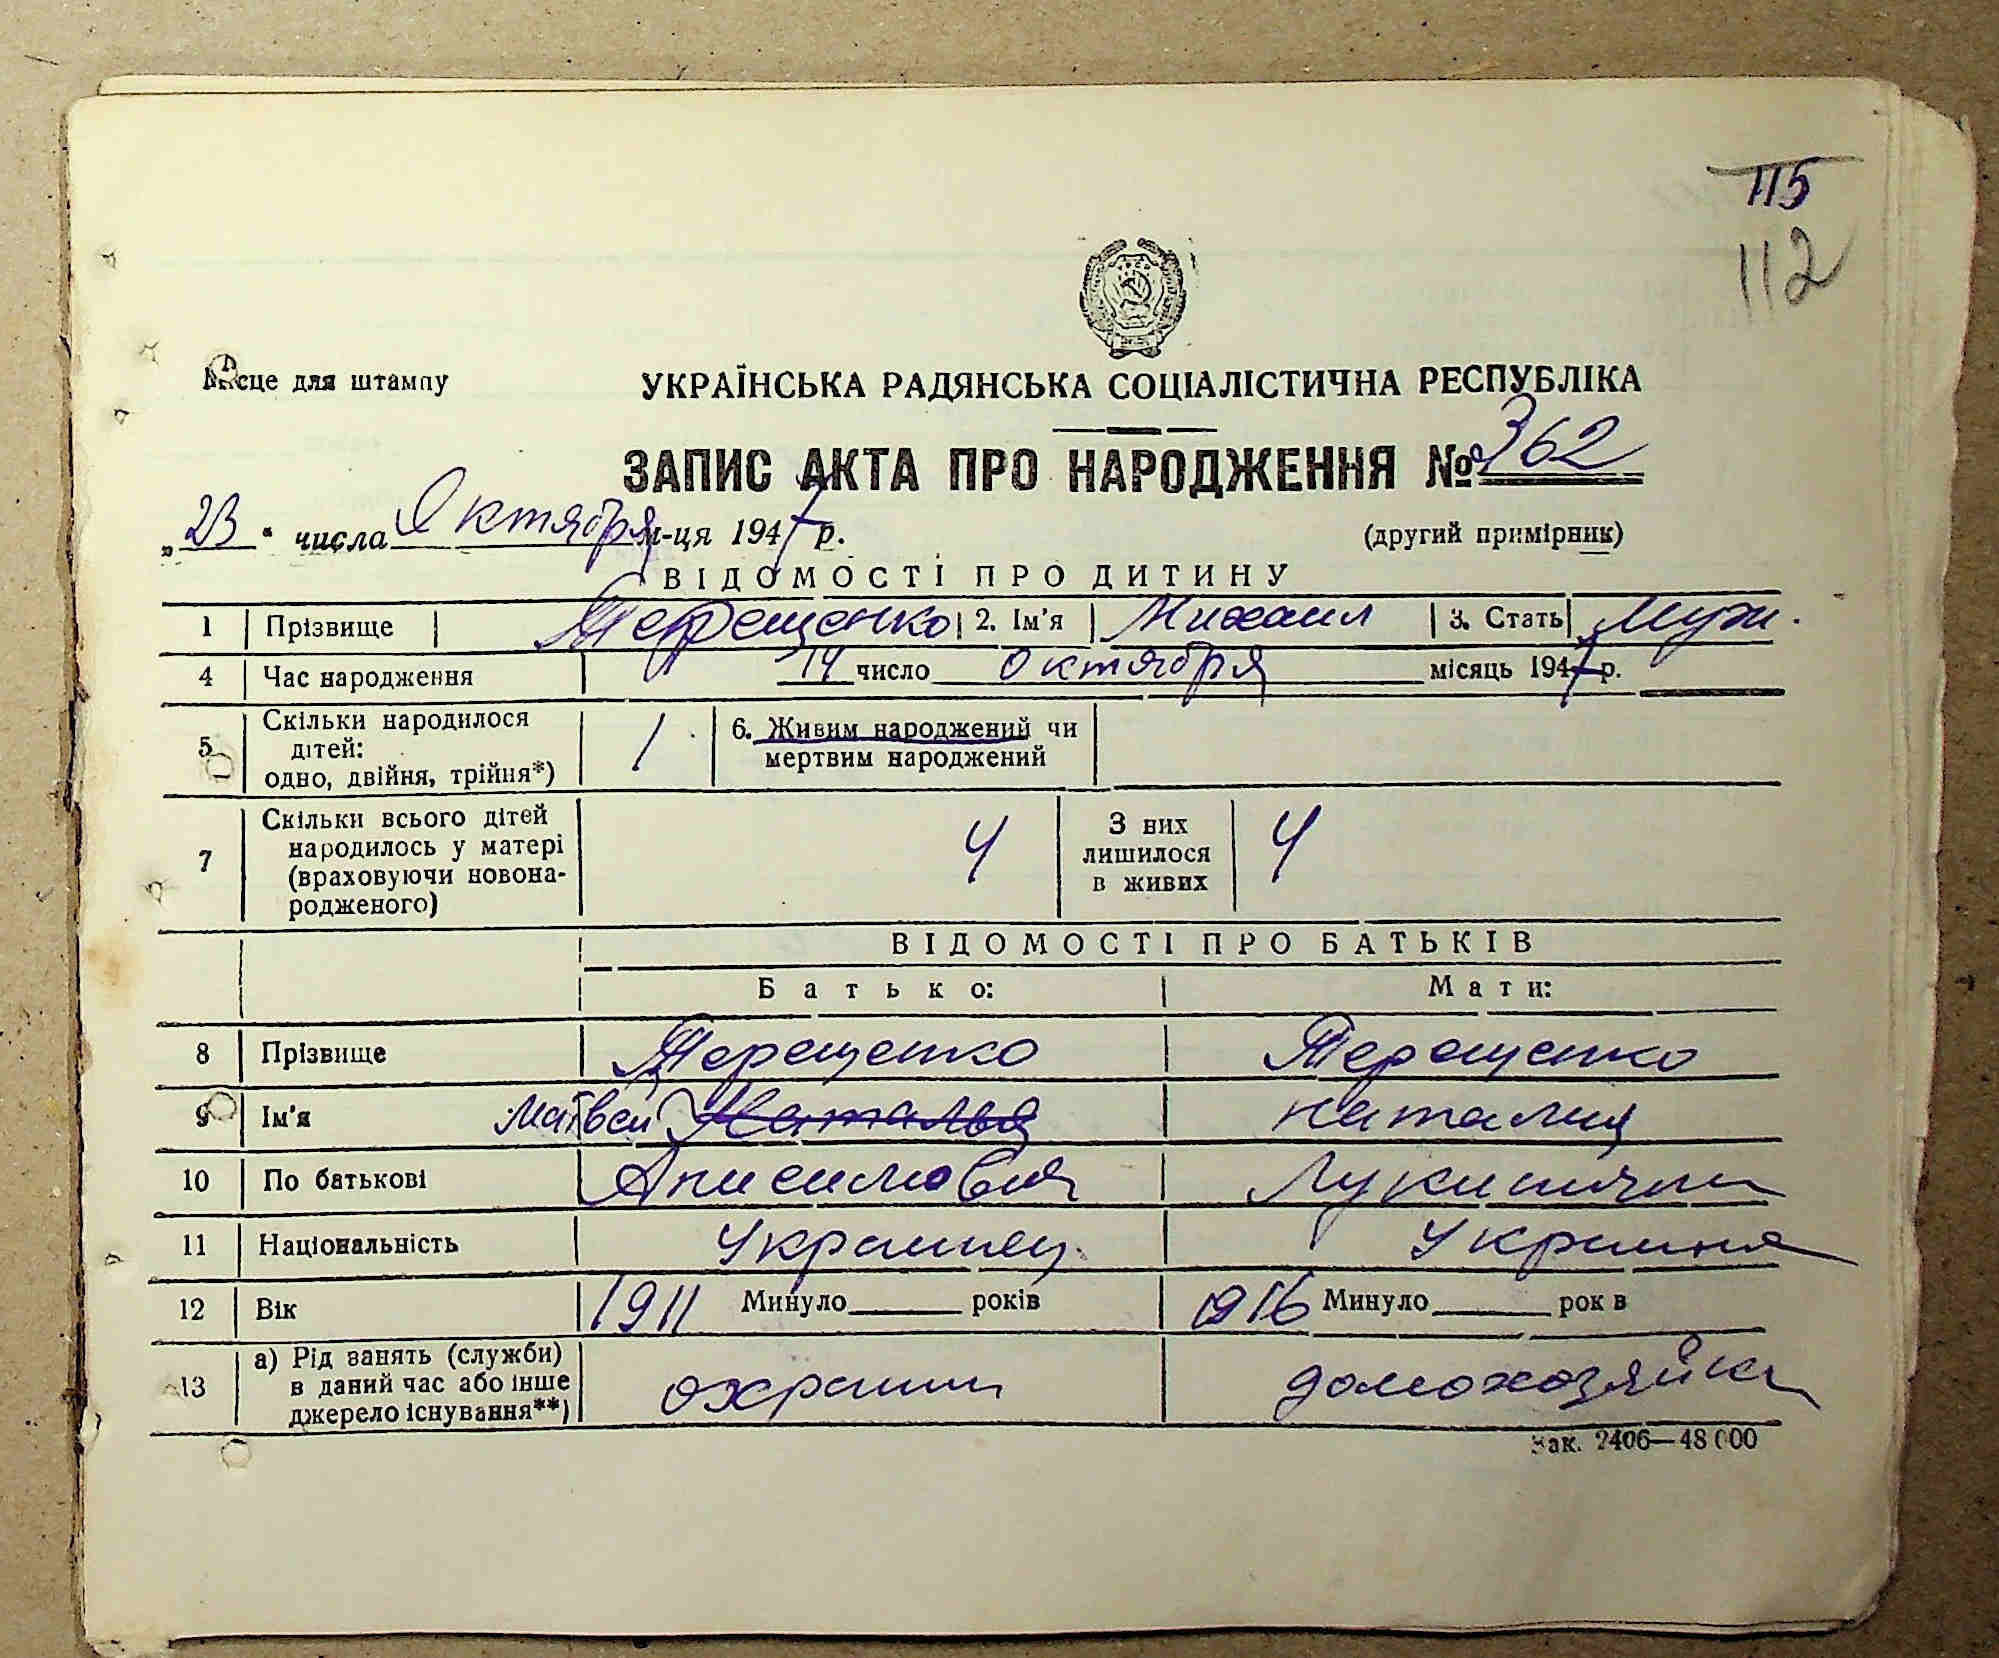 115
112
Місце для штампу
УКРАЇНСЬКА РАДЯНСЬКА СОЦІАЛІСТИЧНА РЕСПУБЛІКА
ЗАПИС АКТА ПРО НАРОДЖЕННЯ № 362
„23“ числа Октября м-ця 1947 р. (другий примірник)
ВІДОМОСТІ ПРО ДИТИНУ
1 Прізвище Терещенко 2. Ім'я Михаил 3. Стать Муж.
4 Час народження 14 число октября місяць 1947 р.
5 Скільки народилося дітей: одно, двійня, трійня*) 1 6. Живим народжений чи мертвим народжений
7 Скільки всього дітей народилось у матері (враховуючи новонародженого) 4 З них лишилося в живих 4
ВІДОМОСТІ ПРО БАТЬКІВ
Батько: Мати:
8 Прізвище Терещенко Терещенко
9 Ім'я Матвей Наталия
10 По батькові Анисимович Лукинична
11 Національність Украинец Украинка
12 Вік 1911 Минуло років 1916 Минуло рок в
13 а) Рід занять (служби) в даний час або інше джерело існування**) домохозяйка
Зак. 2406—48000